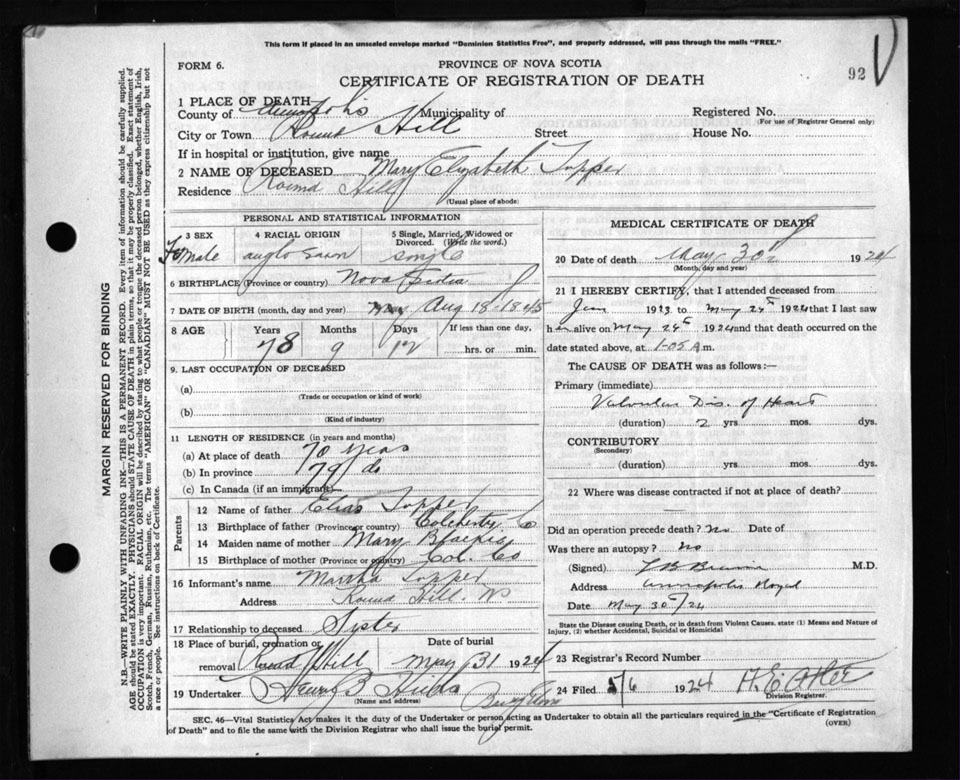 This form if placed in an unsealed envelope marked "Dominion Statistics Free", and properly addressed, will pass through the mails "FREE."
FORM 6.
PROVINCE OF NOVA SCOTIA
CERTIFICATE OF REGISTRATION OF DEATH
92
1 PLACE OF DEATH
County of Annapolis Municipality of Registered No.
(For use of Registrar General only)
City or Town Round Hill Street House No.
If in hospital or institution, give name
2 NAME OF DECEASED Mary Elizabeth Tupper
Residence Round Hill
(Usual place of abode)
PERSONAL AND STATISTICAL INFORMATION
3 SEX
Female
4 RACIAL ORIGIN
anglo Saxon
5 Single, Married, Widowed or Divorced. (Write the word.)
single
6 BIRTHPLACE (Province or country) Nova Scotia
7 DATE OF BIRTH (month, day and year) Aug 18-1845
8 AGE Years Months Days If less than one day,
78 9 12 hrs. or min.
9. LAST OCCUPATION OF DECEASED
(a)
(Trade or occupation or kind of work)
(b)
(Kind of industry)
11 LENGTH OF RESIDENCE (in years and months)
(a) At place of death 70 years
(b) In province 79 do
(c) In Canada (if an immigrant)
Parents
12 Name of father Elias Tupper
13 Birthplace of father (Province or country) Colchester Co
14 Maiden name of mother Mary
15 Birthplace of mother (Province or country) Col. Co
16 Informant's name Martha Tupper
Address Round Hill. NS
17 Relationship to deceased Sister
18 Place of burial, cremation or Date of burial
removal Round Hill May 31 1924
19 Undertaker Henry B Hicks
(Name and address)
MEDICAL CERTIFICATE OF DEATH
20 Date of death May 30th 1924
(Month, day and year)
21 I HEREBY CERTIFY, that I attended deceased from
Jan 1923 to May 24th 1924 that I last saw
her alive on May 24th 1924 and that death occurred on the
date stated above, at 1-05 A m.
The CAUSE OF DEATH was as follows:—
Primary (immediate)
Valvular Dis. of Heart
(duration) 2 yrs mos. dys.
CONTRIBUTORY
(Secondary)
(duration) yrs. mos. dys.
22 Where was disease contracted if not at place of death?
Did an operation precede death? No Date of
Was there an autopsy? no
(Signed) M.D.
Address Annapolis Royal
Date May 30/24
State the Disease causing Death, or in death from Violent Causes. state (1) Means and Nature of Injury, (2) whether Accidental, Suicidal or Homicidal
23 Registrar's Record Number
24 Filed 5/6 1924
Division Registrar.
SEC. 46—Vital Statistics Act makes it the duty of the Undertaker or person acting as Undertaker to obtain all the particulars required in the "Certificate of Registration
of Death" and to file the same with the Division Registrar who shall issue the burial permit.
(OVER)
MARGIN RESERVED FOR BINDING
N.B.—WRITE PLAINLY WITH UNFADING INK—THIS IS A PERMANENT RECORD. Every item of information should be carefully supplied.
AGE should be stated EXACTLY. PHYSICIANS should STATE CAUSE OF DEATH in plain terms, so that it may be properly classified. Exact statement of
OCCUPATION is very important. RACIAL ORIGIN will be described by stating to what people or tongue the deceased person belonged, whether English, Irish,
Scotch, French, German, Russian, Ruthenian, etc. The terms "AMERICAN" OR "CANADIAN" MUST NOT BE USED as they express citizenship but not
a race or people. See instructions on back of Certificate.